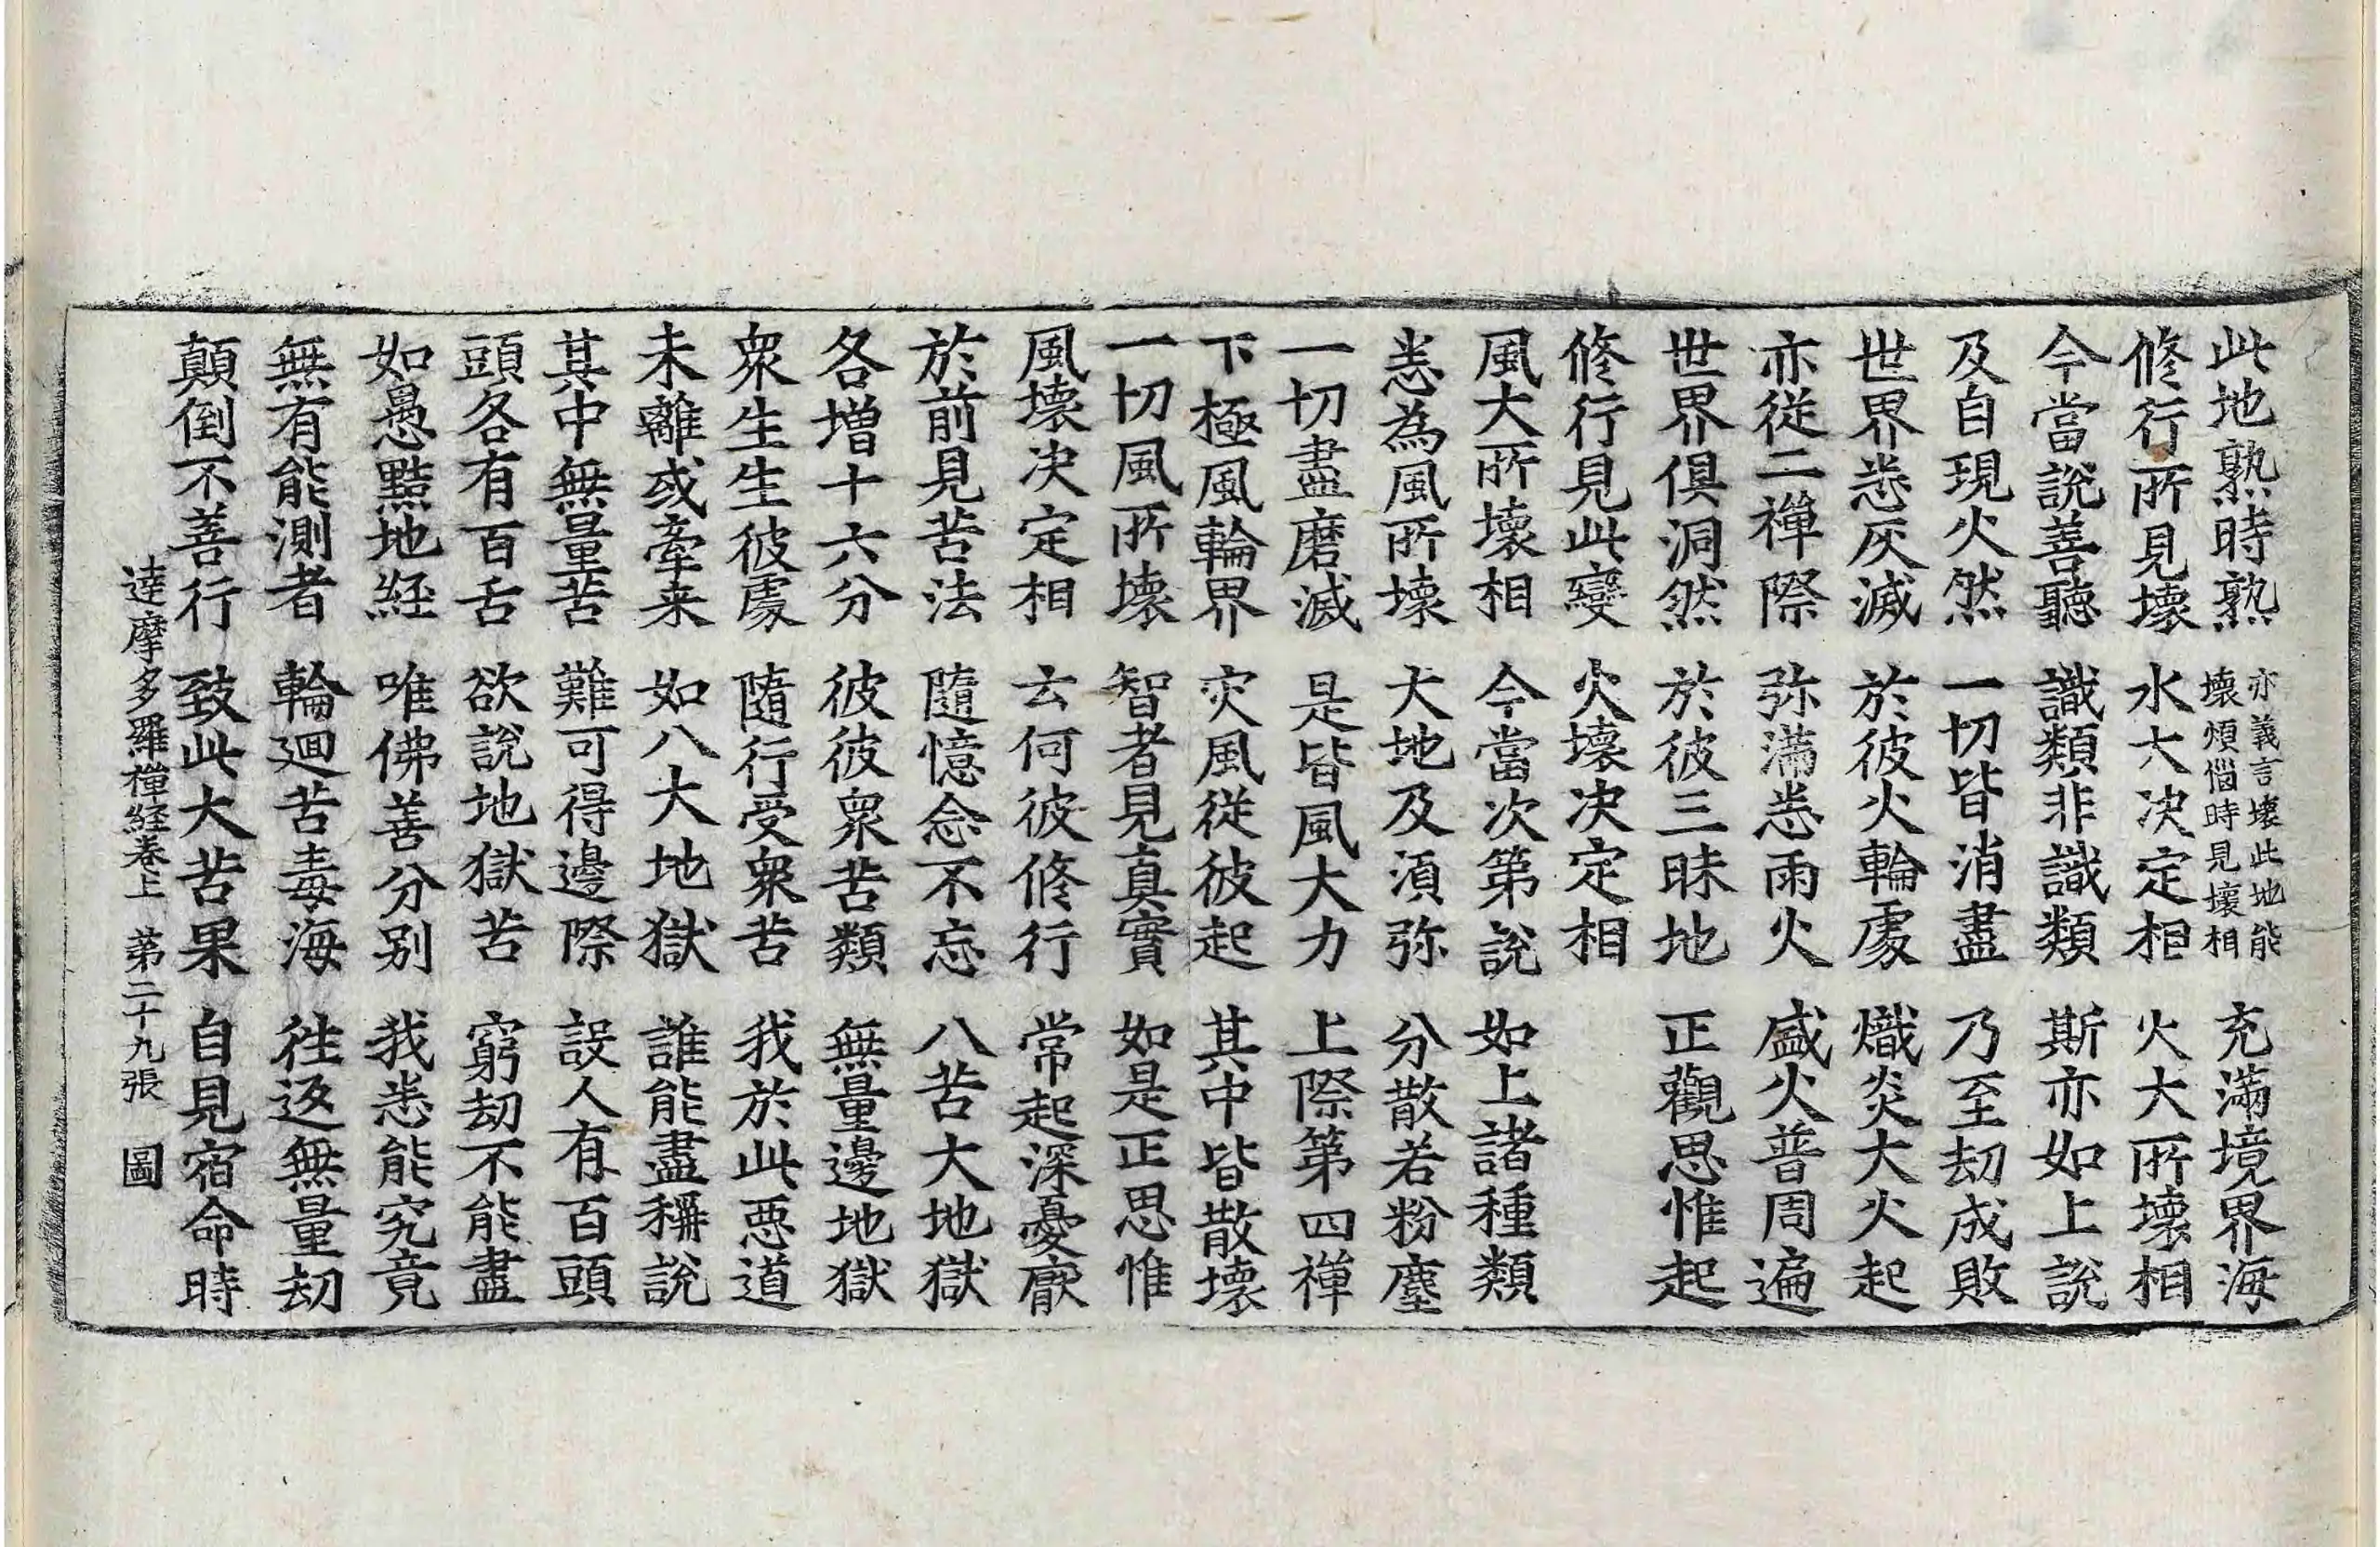 此地熟時熟 亦義言壞此地能壞煩惱時見壞相 充滿境界海
修行所見壞 水大决定相 火大所壞相
今當說善聽 識類非識類 斯亦如上說
及自現火然 一切皆消盡 乃至劫成敗
世界悉灰滅 於彼火輪處 熾炎大火起
亦從二禪際 弥滿悉雨火 盛火普周遍
世界俱洞然 於彼三昧地 正觀思惟起
修行見此變 火壞決定相
風大所壞相 今當次第說 如上諸種類
悉為風所壞 大地及湏弥 分散若粉塵
一切盡磨滅 是皆風大力 上際第四禪
下極風輪界 灾風從彼起 其中皆散壞
一切風所壞 智者見真實 如是正思惟
風壞決定相 云何彼修行 常起深憂厭
於前見苦法 隨憶念不忘 八苦大地獄
各增十六分 彼彼衆苦類 無量邊地獄
衆生生彼處 隨行受衆苦 我於此惡道
未離或牽来 如八大地獄 誰能盡稱說
其中無量苦 難可得邊際 設人有百頭
頭各有百舌 欲說地獄苦 窮劫不能盡
如愚黠地経 唯佛善分别 我悉能究竟
無有能測者 輪迴苦毒海 往返無量劫
顛倒不善行 致此大苦果 自見宿命時
達摩多羅禪経卷上 第二十九張 圖